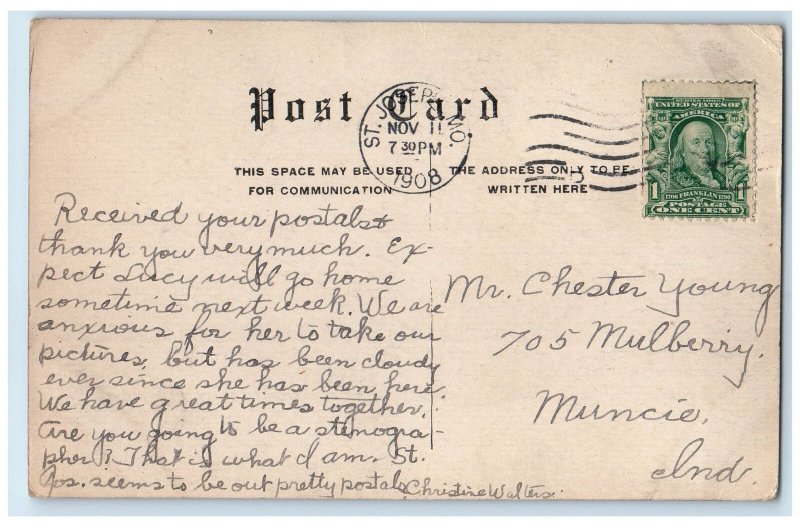 Post Card
ST. JOSEPH, MO.
NOV 11
7 30 PM
1908
SERIES 1902
UNITED STATES OF
AMERICA
1
1706 FRANKLIN 1790
POSTAGE
ONE CENT
THIS SPACE MAY BE USED
FOR COMMUNICATION
THE ADDRESS ONLY TO BE
WRITTEN HERE
Received your postals &
thank you very much. Ex-
pect Lucy will go home
sometime next week. We are
anxious for her to take our
pictures, but has been cloudy
ever since she has been here
We have great times together.
Are you going to be a stenogra-
pher? That is what I am. St.
Jos. seems to be out pretty postals
Christine Walters.
Mr. Chester Young
705 Mulberry.
Muncie,
Ind.